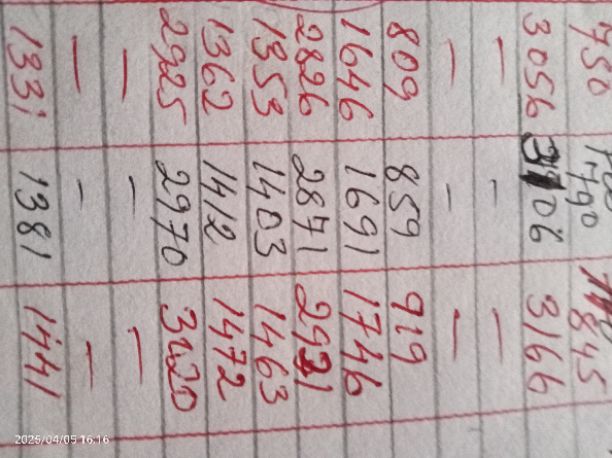 3056 3106 3166
— — —
— — —
809 859 919
1646 1691 1746
2826 2871
1353 1403 1463
1362 1412 1472
2925 2970
— — —
— — —
1331 1381 1441
2025/04/05 16:16